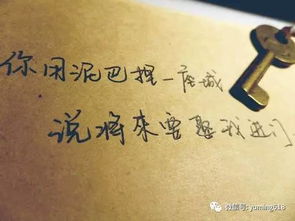 你用泥巴捏一座城
说将来要娶我进门
微信号: yuming618